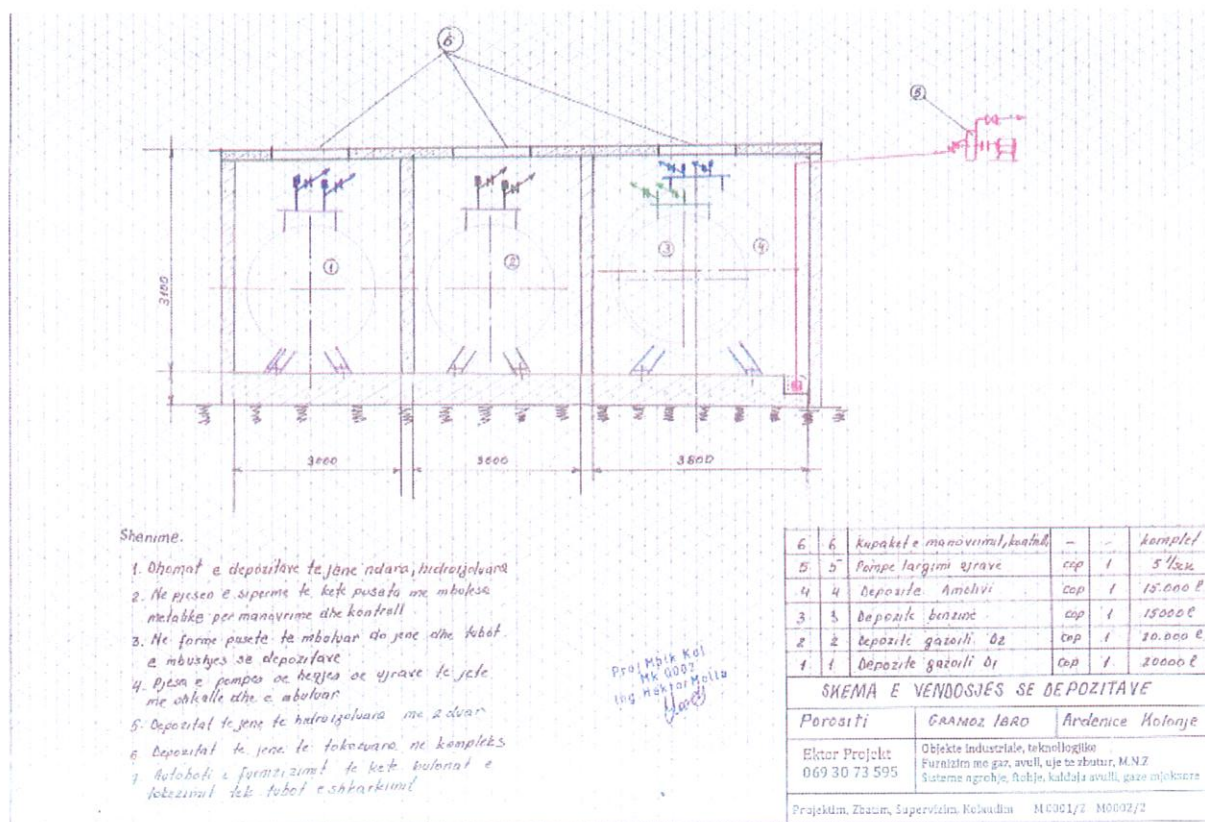 6
5
1
2
3
4
3100
3000
3000
3800
Shenime.
1. Dhomat e depozitave te jene ndara, hidroizoluara
2. Ne pjesen e siperme te kete puseta me mbulesa
metalike per manovrime dhe kontroll
3. Ne forme pusete te mbuluar do jene dhe tubot
e mbushjes se depozitave
4. Pjesa e pompes se heqjes se ujrave te jete
me shkalle dhe e mbuluar
5. Depozitat te jene te hidroizoluara me 2 duar
6 Depozitat te jene te tokezuara ne kompleks
7 Autoboti i furnizimit te kete butonat e
tokezimit tek tubot e shkarkimit
Proj Mbik Kol
MK 0002
Ing Hektor Molla
6 6 Kapaket e manovrimit, kontroll - - komplet
5 5 Pompe largimi ujrave cop 1 5 l/sek
4 4 Depozite cop 1 15.000 l
3 3 Depozite benzine cop 1 15000 l
2 2 Depozite gazoili D2 cop 1 20.000 l
1 1 Depozite gazoili D1 cop 1 20000 l
SKEMA E VENDOSJES SE DEPOZITAVE
Porositi GRAMOZ IBRO Ardenice Kolonje
Ektor Projekt
069 30 73 595
Objekte industriale, teknollogjike
Furnizim me gaz, avull, uje te zbutur, M.N.Z
Sisteme ngrohje, ftohje, kaldaja avulli, gaze mjeksore
Projektim, Zbatim, Supervizim, Kolaudim M 0001/2 M0002/2